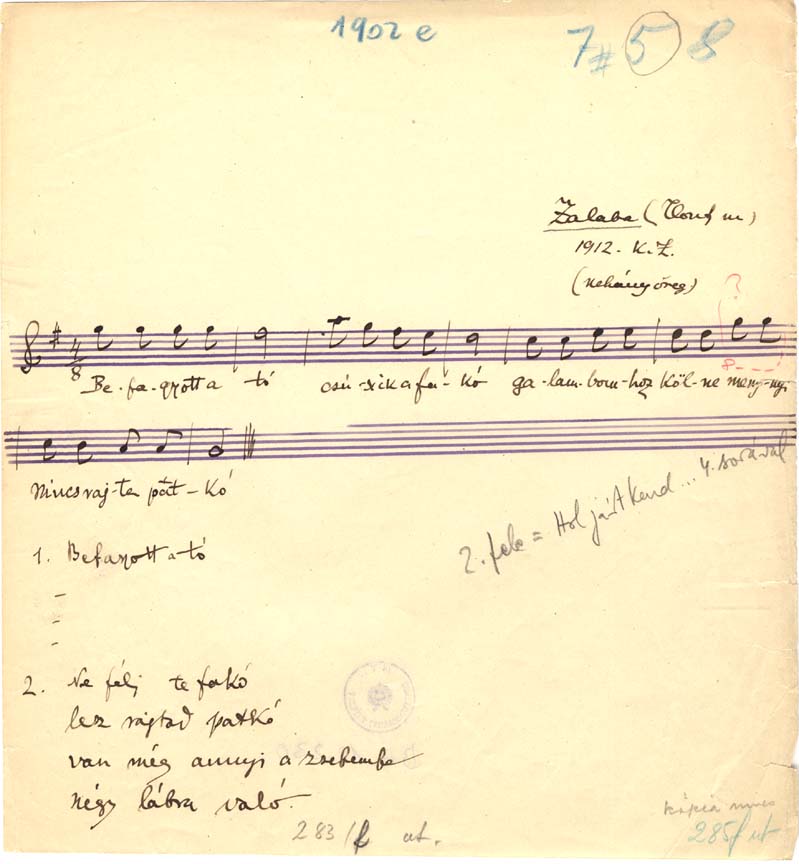 1902 e
7 # 5 8
Zalaba (Hont m)
1912. K. Z.
(nehány öreg)
?
4/8
Be-fa-gyott a tó csú-szik a fa-kó ga-lam-bom-hoz köl-ne menj-nyi
8
nincs raj-ta pat-kó
2. fele = Hol járt kend ... 4. sorával
1. Befagyott a tó
-
-
-
2. Ne félj te fakó
lez rajtad patkó
van még annyi a zsebembe
négy lábra való.
283/f ut.
kópia nincs
285f ut